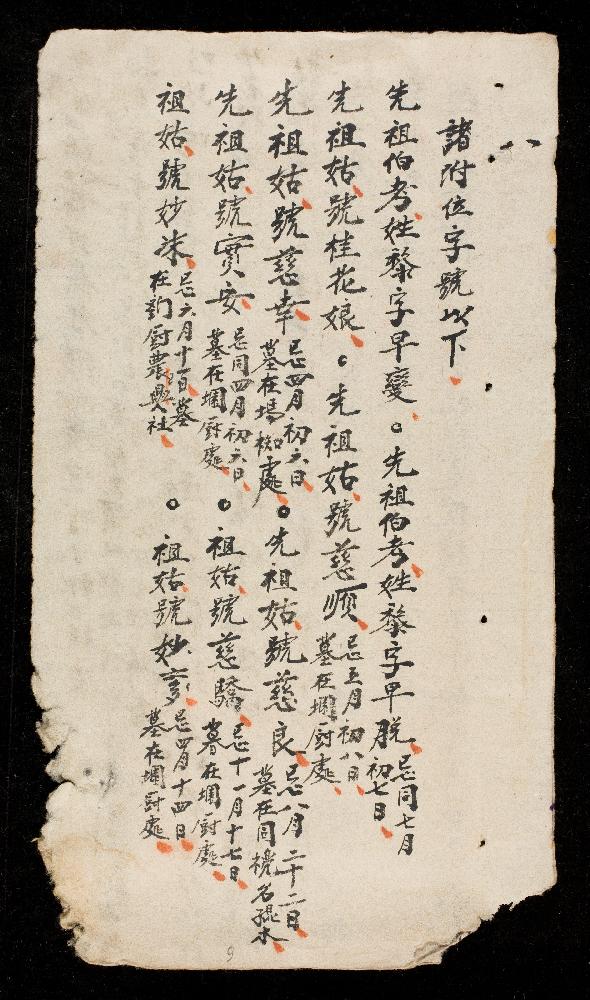 諸附位字號以下
先祖伯考姓黎字早變。先祖伯考姓黎字早脱忌同七月初七日
先祖姑號桂花娘。先祖姑號慈順忌五月初八日墓在墹厨處
先祖姑號慈幸忌四月初六日墓在塲處。先祖姑號慈良忌八月二十二日墓在同名水
先祖姑號寘安忌同四月初六日墓在墹厨處。祖姑號慈驕忌十一月十七日墓在墹厨處
祖姑號妙忌六月十一日墓在厨農社。祖姑號妙忌四月十四日墓在墹厨處
9